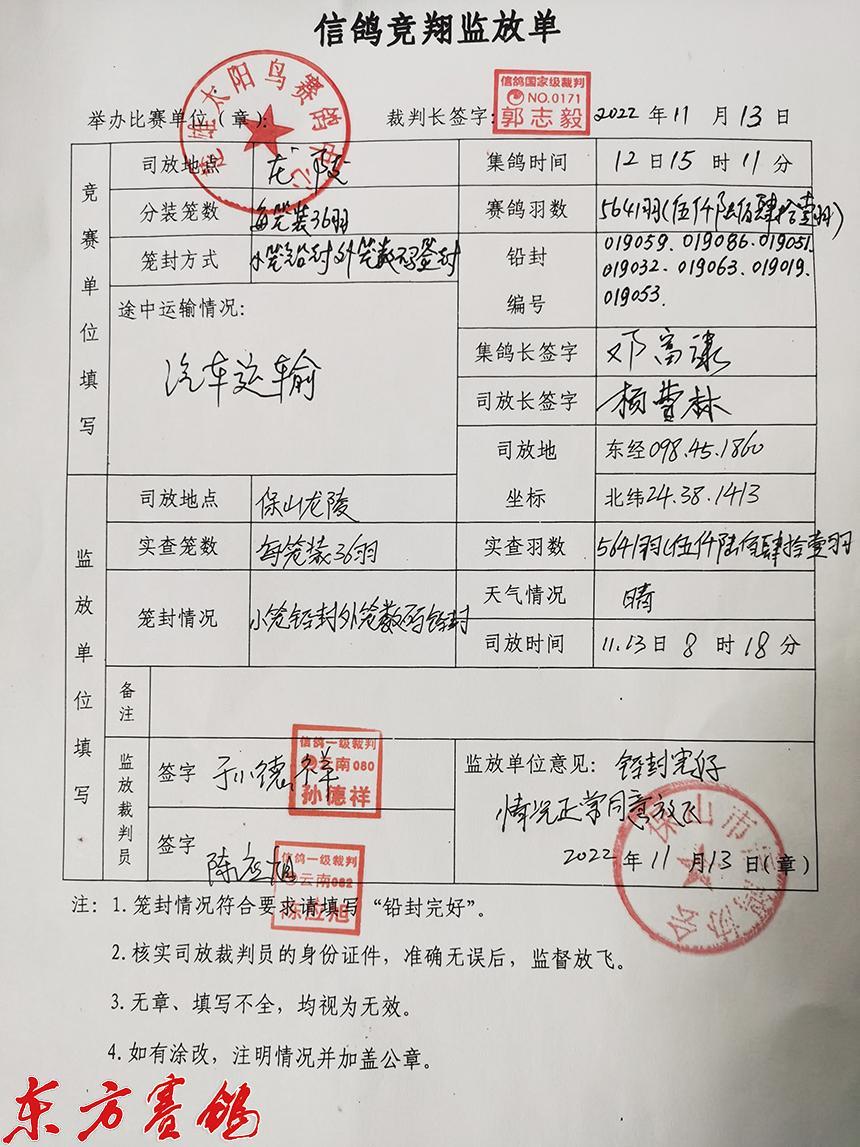 信鸽竞翔监放单
举办比赛单位(章):
太阳鸟赛鸽中心
裁判长签字:
信鸽国家级裁判
NO.0171
郭志毅
2022 年 11 月 13 日
竞赛单位填写
司放地点 龙陵
集鸽时间 12 日 15 时 11 分
分装笼数 每笼装36羽
赛鸽羽数 5641羽(伍仟陆佰肆拾壹羽)
笼封方式 小笼铅封外笼数码签封
铅封编号 019059、019086、019051、
019032、019063、019019、
019053.
途中运输情况:
汽车运输
集鸽长签字 邓富
司放长签字 杨费林
司放地坐标 东经098.45.1860
北纬24.38.1413
监放单位填写
司放地点 保山龙陵
实查笼数 每笼装36羽
实查羽数 5641羽(伍仟陆佰肆拾壹羽
笼封情况 小笼铅封外笼数码铅封
天气情况 晴
司放时间 11.13日 8 时 18 分
备注
监放裁判员
签字 孙德祥
信鸽一级裁判
云南080
孙德祥
签字 陈应旭
信鸽一级裁判
云南082
陈应旭
监放单位意见: 铅封完好
情况正常同意放飞
2022 年 11 月 13 日(章)
保山市信鸽协会
注: 1.笼封情况符合要求请填写“铅封完好”。
2.核实司放裁判员的身份证件，准确无误后，监督放飞。
3.无章、填写不全，均视为无效。
4.如有涂改，注明情况并加盖公章。
东方赛鸽